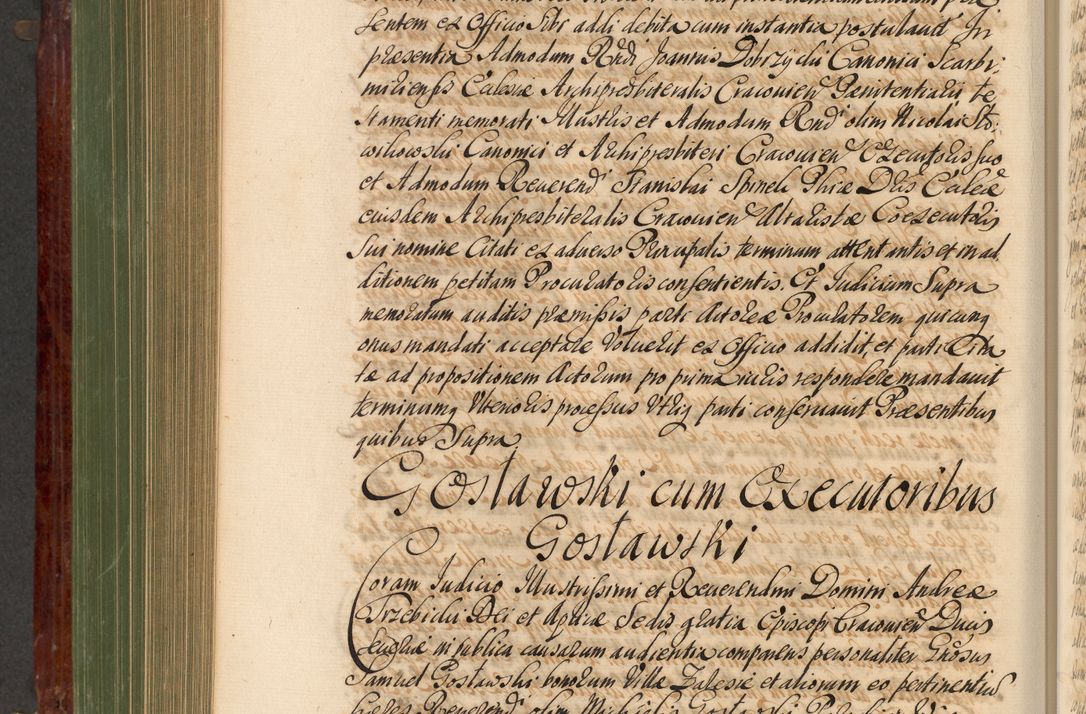 sentem ex Officio sibi addi debita cum instantia postulavit In
præsentia Admodum Rndi Joannis Dobrzycki Canonici Scarbi-
miriensis Ecclesiæ Archipresbiteralis Cracovien Pænitentiarii te
stamenti memorati Illustris et Admodum Rndi olim Nicolai Sło-
wikowski Canonici et Archipresbiteri Cracovien Executoris suo
et Admodum Reverendi Stanislai Spinek Phiæ Dris Ecclesiæ
eiusdem Archipresbiteralis Cracovien Altaristæ Coexecutoris
sui nomine Citati ex adverso Principalis terminum attentantis et in ad
ditionem petitam Procuratoris consentientis. Et Judicium Supra
memoratum auditis præmissis parti Actoreæ Procuratorem quicunq
onus mandati acceptare voluerit ex Officio addidit, et parti Cita
tæ ad propositionem Actorum pro prima iuris respondere mandavit
terminumq ulterioris processus utriq parti conservavit Præsentibus
quibus Supra
Gosławski cum Executoribus
Gosławski
Coram Judicio Illustrissimi et Reverendmi Domini Andreæ
Trzebicki Dei et Apticæ Sedis gratia Episcopi Cracovien Ducis
Severiæ in publica causarum audientia comparens personaliter Gnosus
Samuel Gosławski bonorum Villæ Zalesie et aliorum eo pertinentium
hæres Reverend olim Michaelis Gosławski